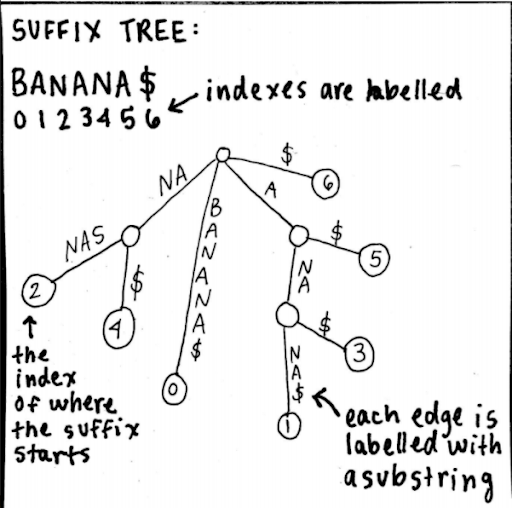 SUFFIX TREE:
BANANA$
indexes are labelled
0123456
$
NA
A
6
BANANA$
NAS
$
$
5
NA
2
4
$
3
0
NA$
1
the
index
of where
the suffix
starts
each edge is
labelled with
a substring